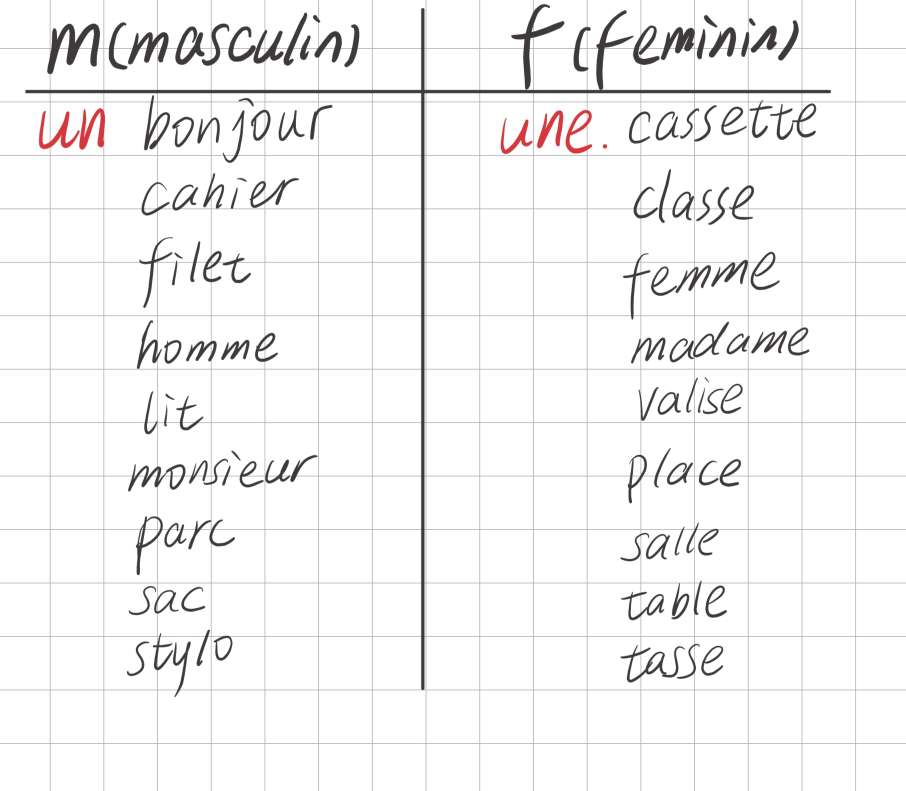 m(masculin) f(feminin)
un bonjour une. cassette
cahier classe
filet femme
homme madame
lit valise
monsieur place
parc salle
sac table
stylo tasse